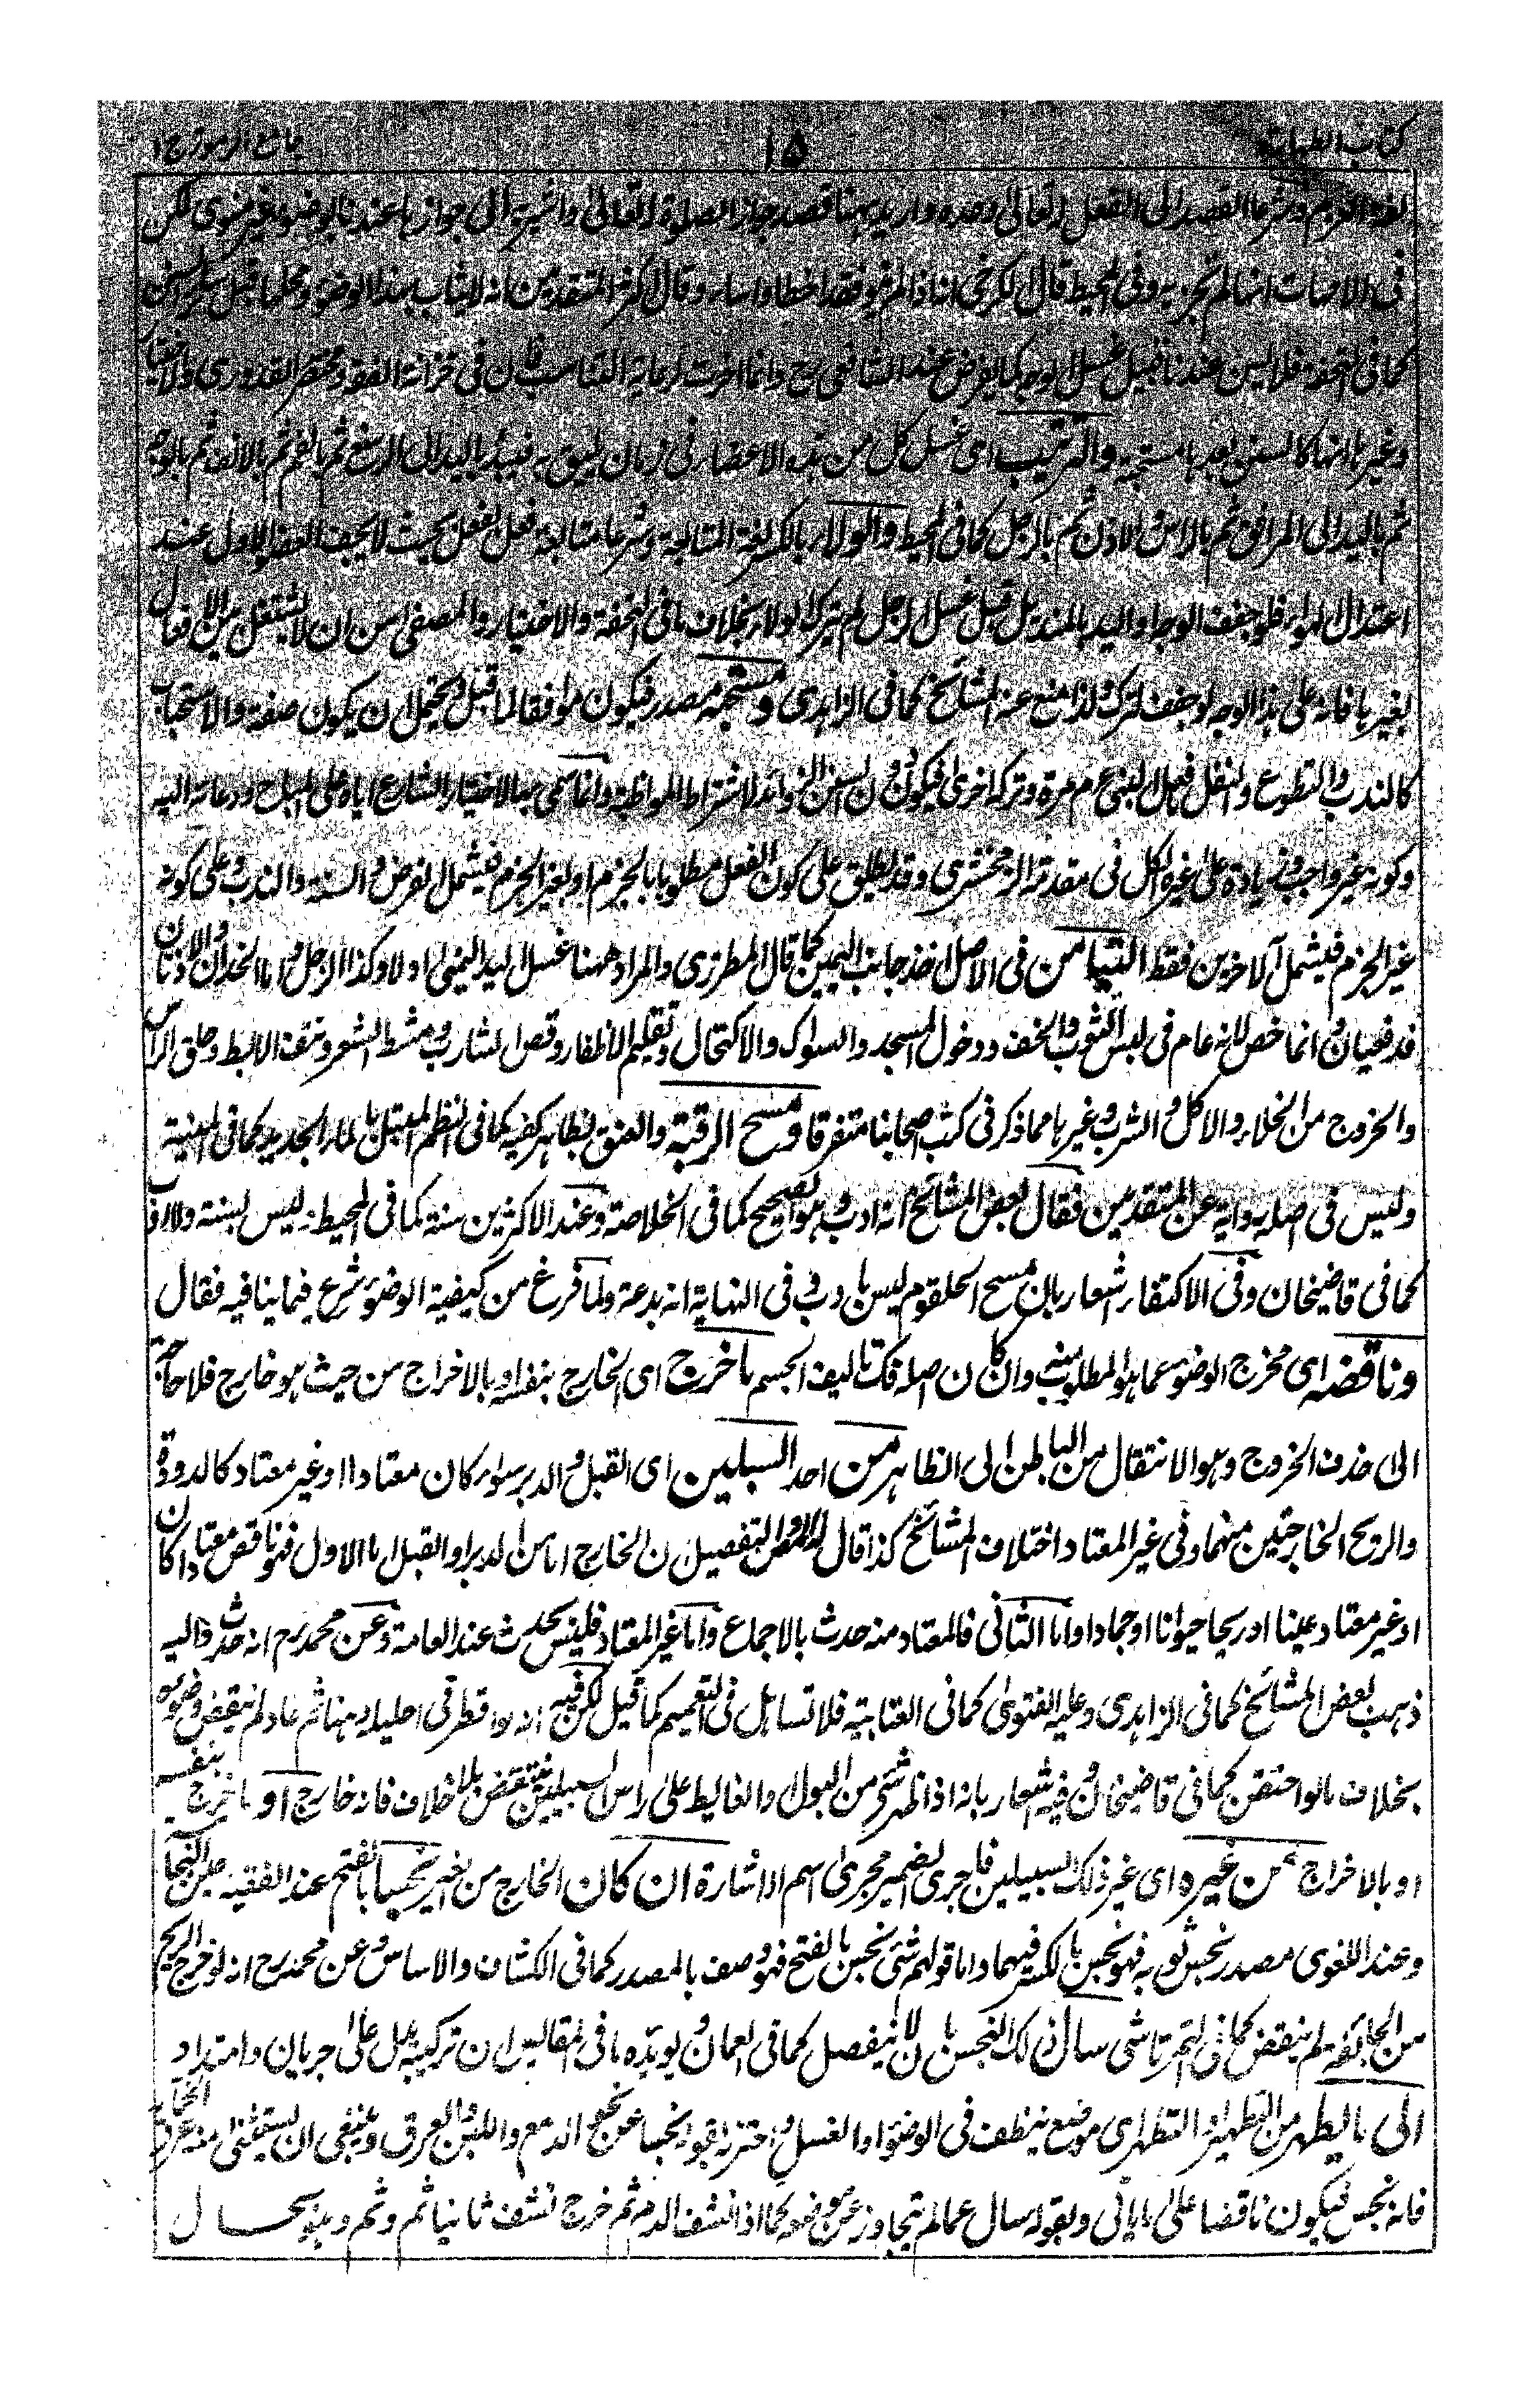 كتاب الطهارة
١٥
جامع الرموز ج ١
لغة العزم وشرعا القصد الى الفعل لله تعالى وحده واريد بهنا قصد جواز الصلوة لله تعالى واشير الى جوازها عندنا بوضوء غير منوى لكن
فى الامهات انها لم تجز به وفى المحيط قال الكرخى انه اذا لم ينو فقد اخطأ واساء وقال اكثر المتقدمين انه لا يثاب بهذا الوضوء ومحلها قبل سائر السنن
كما فى التحفة فلا ليس عندنا قبيل غسل الوجه كما يفرض عند الشافعى رح وانما اخرت لرعاية التناسب فان فى خزانة الفقه ومختصر القدورى
وغيرها انها كالسنن بعدها مستحبة والترتيب اى غسل كل من هذه الاعضاء فى زمان يليق به فيبدأ باليد الى الرسغ ثم بالفم ثم بالانف ثم بالوجه
ثم باليد الى المرافق ثم بالراس والاذن ثم بالرجل كما فى المحيط والولاء بالكسر لغة المتابعة وشرعا متابعة فعل بفعل بحيث لا يجف العضو الاول عند
اعتدال الهواء فلو جفف الوجه او اليد بالمنديل قبل غسل الرجل لم يترك الولاء بخلاف ما فى التحفة والاختيار والمصفى من ان لا يشتغل بين الافعال
بغيرها فانه على هذا الوجه لو جفف لترك ولذا منع عنه المشائخ كما فى الزاهدى ومستحبه مصدر فيكون موافقا لما قبل ويحتمل ان يكون صفة والاستحباب
كالندب والتطوع والنفل فعل النبى م مرة وتركه اخرى فيكون دون السنن الزوائد لاشتراط المواظبة وانما سمى به لاختيار الشارع اياه على المباح ودعائه اليه
وكونه غير واجب وزيادة على غيره الكل فى مقدمة الزمخشرى وقد يطلق على كون الفعل مطلوبا بالجزم او بغير الجزم فيشمل الفرض والسنة والندب وعلى كونه
غير الجزم فيشمل الآخرين فقط التيامن فى الاصل اخذ جانب اليمين كما قال المطرزى والمراد ههنا غسل اليد اليمنى اولا وكذا الرجل واما الخدان والاذنان
فدفعيان وانما خص لانه عام فى لبس الثوب والخف ودخول المسجد والسواك والاكتحال وتقليم الاظفار وقص الشارب ومشط الشعر ونتف الابط وحلق الراس
والخروج من الخلاء والاكل والشرب وغيرها مما ذكر فى كتب اصحابنا متفرقا ومسح الرقبة والعنق بظاهر كفيه كما فى النظم المبتل بالماء الجديد كما فى المنية
وليس فى اصل رواية عن المتقدمين فقال بعض المشائخ انه ادب وهو الصحيح كما فى الخلاصة وعند الاكثرين سنة كما فى المحيط وليس بسنة ولا ادب
كما فى قاضيخان وفى الاكتفاء اشعار بان مسح الحلقوم ليس بادب وفى النهاية انه بدعة ولما فرغ من كيفية الوضوء شرع فيما ينافيه فقال
وناقضه اى مخرج الوضوء عما هو المطلوب منه وان كان اصله فك تاليف الجسم ما خرج اى الخارج بنفسه او بالاخراج من حيث هو خارج فلا حاجة
الى حذف الخروج وهو الانتقال من الباطن الى الظاهر من احد السبيلين اى القبل والدبر سواء كان معتادا او غير معتاد كالدودة
والريح الخارجتين منهما وفى غير المعتاد اختلاف المشائخ كذا قال التفصيل ان الخارج اما من الدبر او القبل اما الاول فهو ناقض معتادا كان
او غير معتاد عينا او ريحا حيوانا او جمادا واما الثانى فالمعتاد منه حدث بالاجماع واما غير المعتاد فليس بحدث عند العامة وعن محمد رح انه حدث واليه
ذهب بعض المشائخ كما فى الزاهدى وعليه الفتوى كما فى العتابية فلا تساهل فى التعميم كما قيل لكن فيه انه لو اقطر فى احليله دهنا ثم عاد لم ينقض وضوءه
بخلاف ما لو احتقن كما فى قاضيخان وفيه اشعار بانه اذا ظهر شئ من البول والغايط على راس السبيلين ينتقض بلا خلاف فانه خارج او ما خرج بنفسه
او بالاخراج من غيره اى غير ذلك السبيلين فاجرى الضمير مجرى اسم الاشارة ان كان الخارج من الغير نجسا بالفتح عند الفقيه عين النجاسة
وعند اللغوى مصدر نجس ثوبه فهو نجس بالكسر فيهما واما قولهم شئ نجس بالفتح فهو وصف بالمصدر كما فى الكشاف والاساس وعن محمد رح انه لو خرج الريح
من الجائفة لم ينقض كما فى التمرتاشى سال ذلك النجس بان لا ينفصل كما فى العمان ويؤيده ما فى المقاليس ان تركيبه يدل على جريان وامتداد
الى ما يطهر من التطهير او التطهر اى موضع ينظف فى الوضوء او الغسل واحترز بقوله نجسا عن نحو الدمع واللبن والعرق وينبغى ان يستثنى منه عرق
فانه نجس فيكون ناقضا على ما ياتى وبقوله سال عما لم يتجاوز عن موضعه كما اذا نشف الدم ثم خرج نشف ثانيا ثم وثم وهو بحال